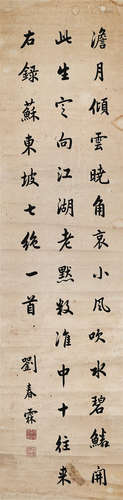 澹月傾雲曉角哀小風吹水碧鱗開
此生定向江湖老默數淮中十往來
右錄蘇東坡七絕一首
劉春霖